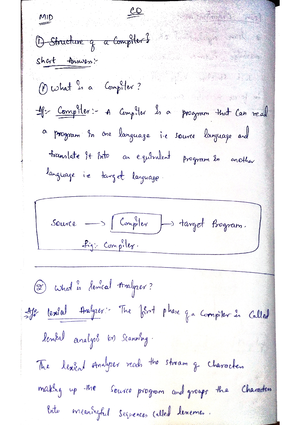 MID
CD
① Structure of a Compiler :
Short Answer:-
① What is a Compiler ?
A:- Compiler:- A Compiler is a program that can read
a program in one language i.e source language and
translate it into an equivalent program in another
language i.e target language
Source → Compiler → target Program.
fig:- Compiler.
② What is lexical Analyzer ?
A:- Lexical Analyzer:- The first phase of a Compiler is called
lexical analysis (or) Scanning.
The lexical Analyzer reads the stream of Characters
making up the source program and groups the Characters
into meaningful sequences called lexeme.